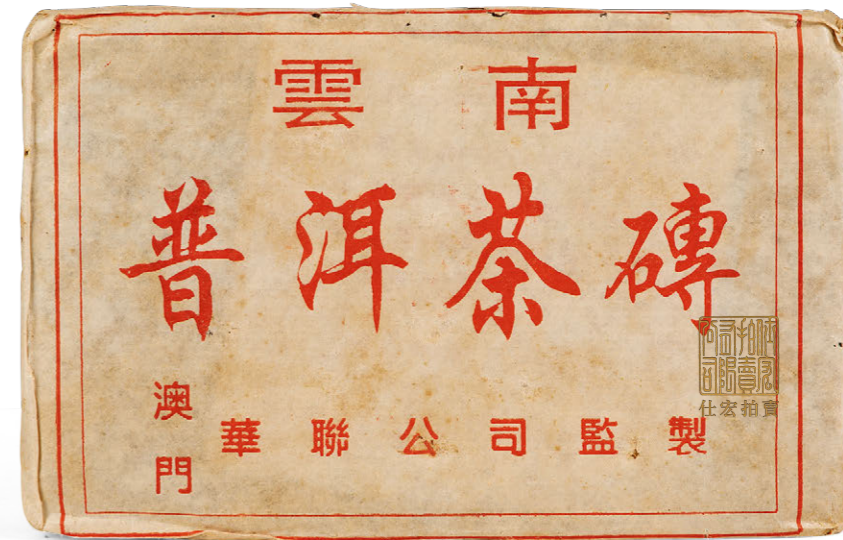 雲南
普洱茶磚
澳門
華聯公司監製
仕宏拍賣